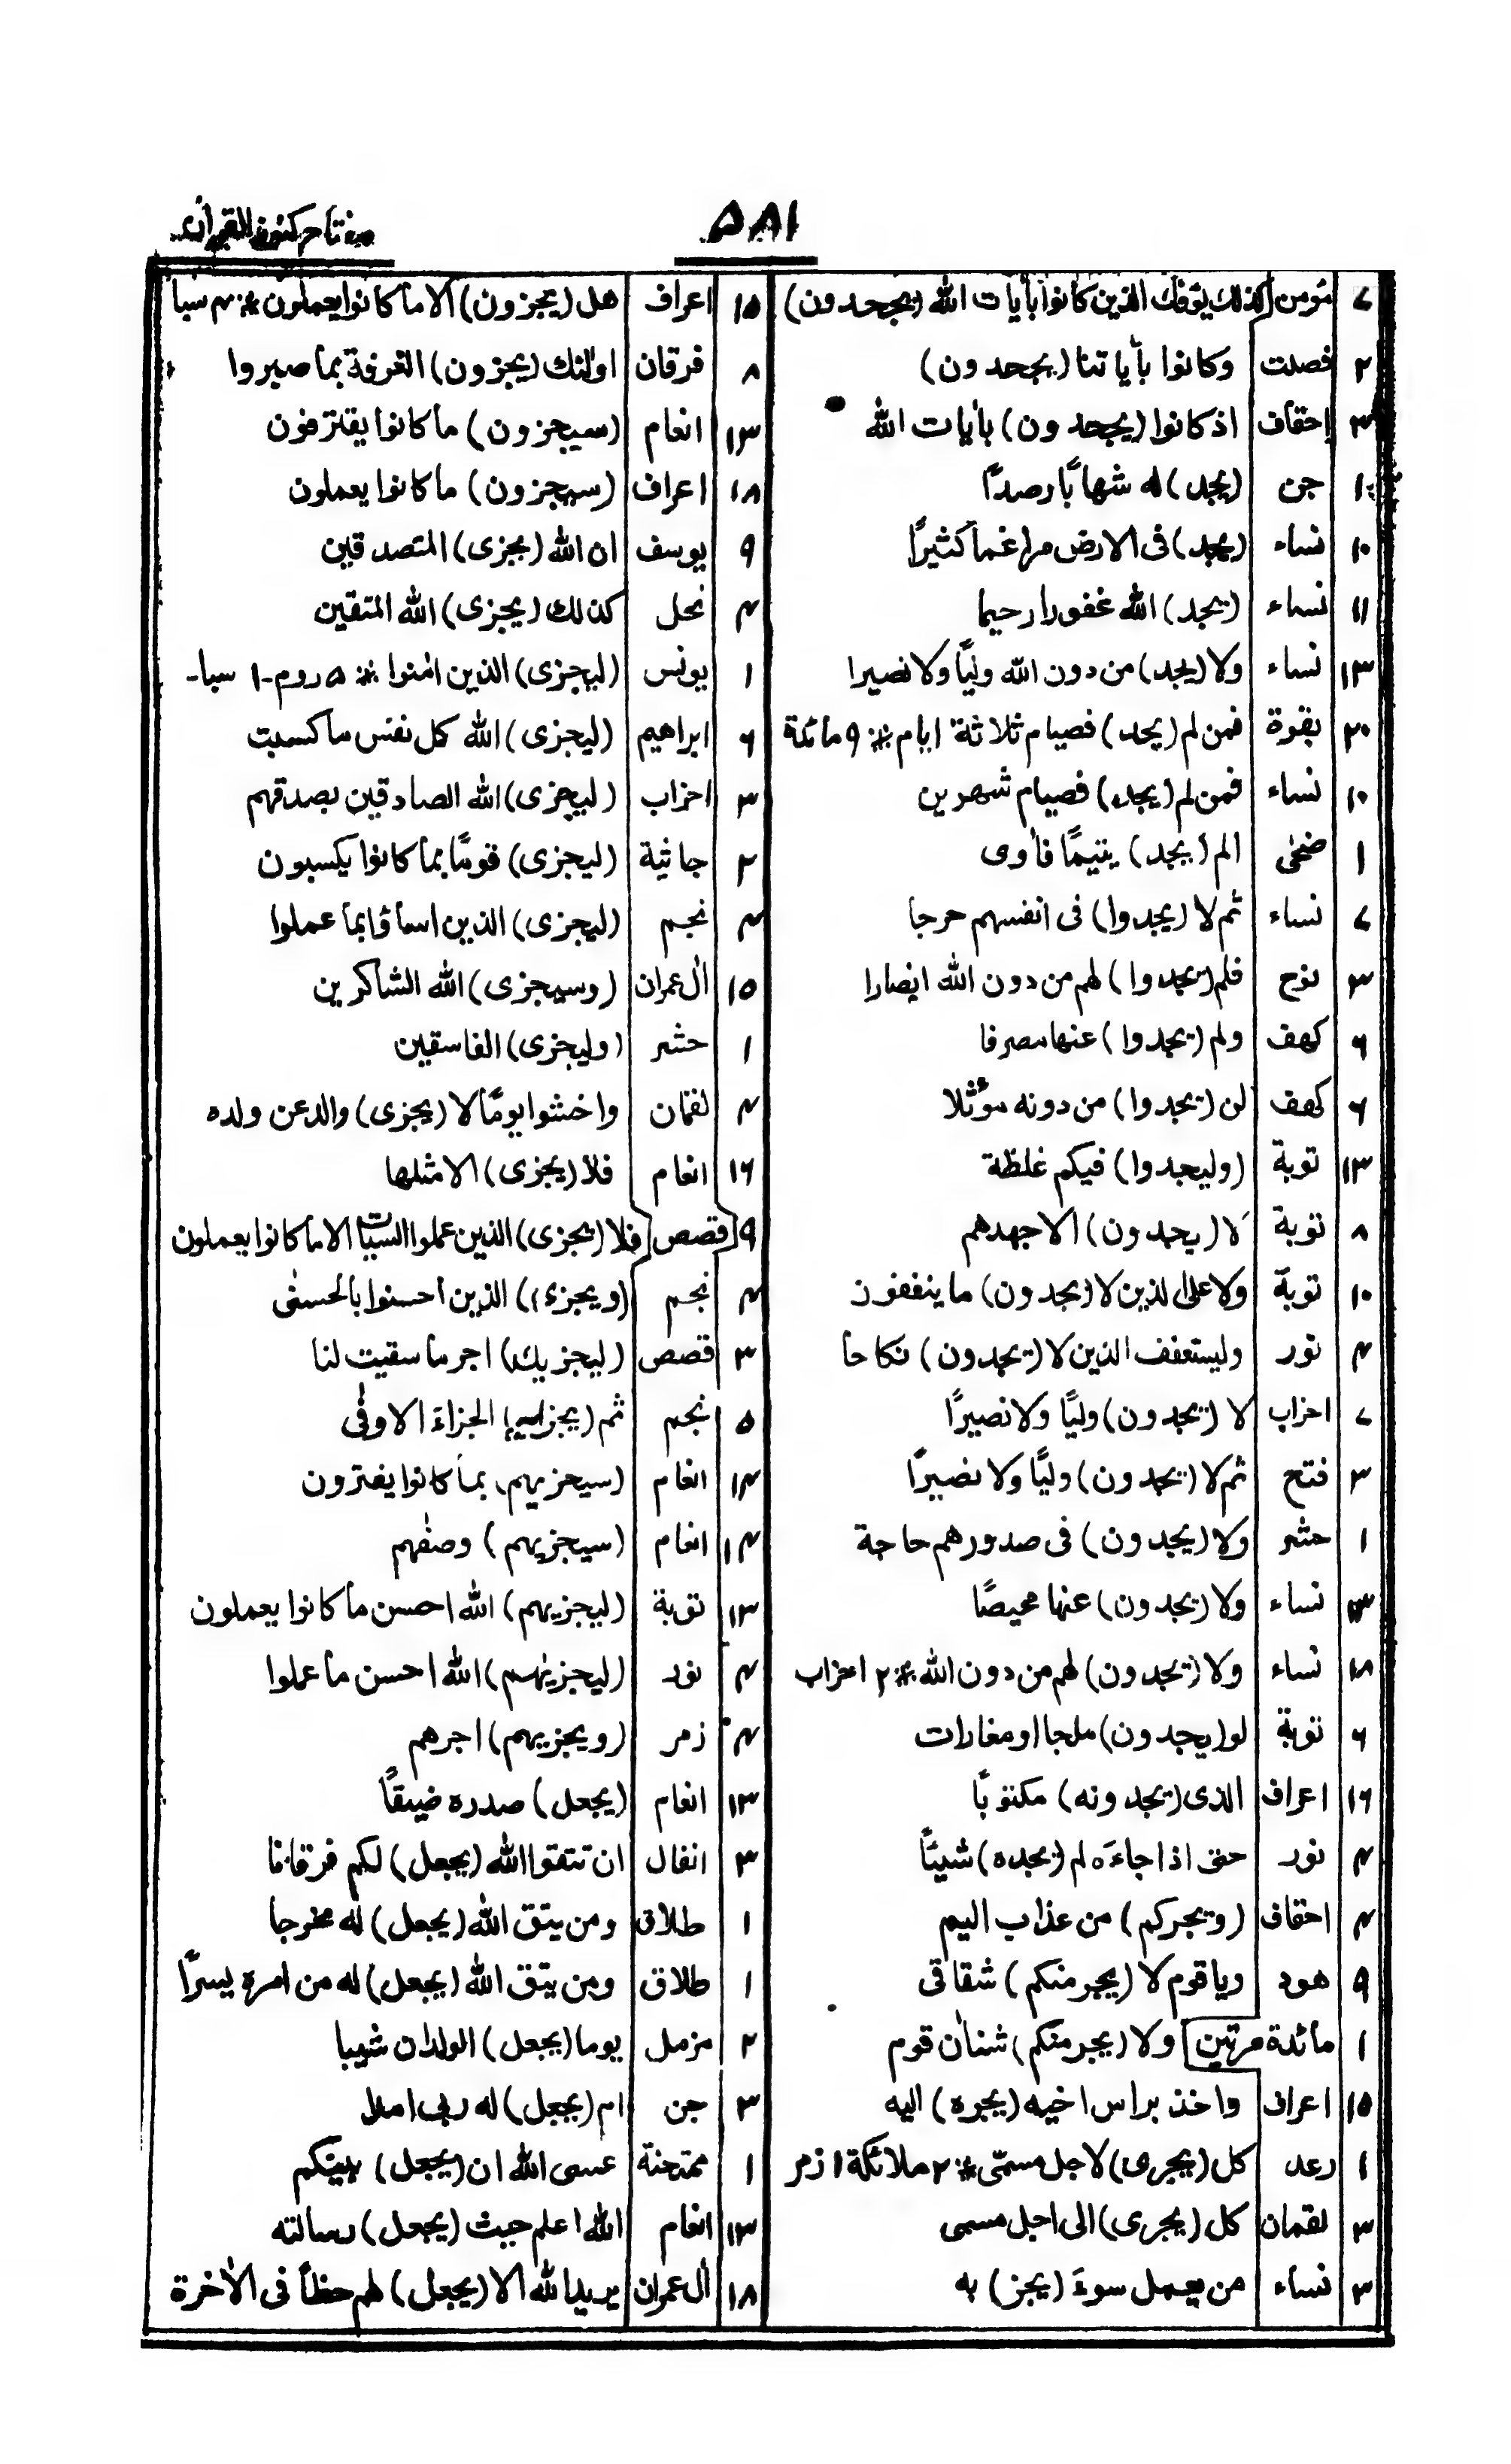 ٥٨١
مفتاح کنوز القرآن
٧ مؤمن کذلك یؤفك الذین کانوا بأیات الله (یجحدون)
٢ فصلت وکانوا بأیاتنا (یجحدون)
٣ احقاف اذ کانوا (یجحدون) بأیات الله
١ جن (یجد) له شهابًا رصدًا
١٠ نساء (یجد) فی الارض مراغمًا کثیرًا
١١ نساء (یجد) الله غفورا رحیما
١٣ نساء ولا (یجد) من دون الله ولیًّا ولا نصیرا
٢٠ بقرة فمن لم (یجد) فصیام ثلاثة ایام * ٩ مائدة
١٠ نساء فمن لم (یجد) فصیام شهرین
١ ضحٰی الم (یجد) یتیمًا فاٰوی
٧ نساء ثم لا (یجدوا) فی انفسهم حرجا
٣ نوح فلم (یجدوا) لهم من دون الله انصارا
٦ کهف ولم (یجدوا) عنها مصرفا
٦ کهف لن (یجدوا) من دونه موئلا
١٣ توبة (ولیجدوا) فیکم غلظة
٨ توبة لا (یجدون) الا جهدهم
١٠ توبة ولا علی الذین لا (یجدون) ما ینفقون
٤ نور ولیستعفف الذین لا (یجدون) نکاحا
٧ احزاب لا (یجدون) ولیًّا ولا نصیرًا
٣ فتح ثم لا (یجدون) ولیًّا ولا نصیرًا
١ حشر ولا (یجدون) فی صدورهم حاجة
١٣ نساء ولا (یجدون) عنها محیصًا
١٨ نساء ولا (یجدون) لهم من دون الله * ٢ احزاب
٦ توبة لو (یجدون) ملجا او مغارات
١٦ اعراف الذی (یجدونه) مکتوبًا
٤ نور حتی اذا جاءه لم (یجده) شیئًا
٤ احقاف (ویجرکم) من عذاب الیم
٩ هود ویا قوم لا (یجرمنکم) شقاقی
١ مائدة مرتین ولا (یجرمنکم) شناٰن قوم
١٥ اعراف واخذ براس اخیه (یجره) الیه
١ رعد کل (یجری) لاجل مسمّی * ٢ ملائکة ١ زمر
٣ لقمان کل (یجری) الی اجل مسمی
٣ نساء من یعمل سوءَ (یجز) به
١٥ اعراف هل (یجزون) الا ما کانوا یعملون * ٤ سبا
٨ فرقان اولٰئك (یجزون) الغرفة بما صبروا
١٣ انعام (سیجزون) ما کانوا یقترفون
١٨ اعراف (سیجزون) ما کانوا یعملون
٩ یوسف ان الله (یجزی) المتصدقین
٤ نحل کذلك (یجزی) الله المتقین
١ یونس (لیجزی) الذین اٰمنوا * ٥ روم - ١ سبا -
٦ ابراهیم (لیجزی) الله کل نفس ما کسبت
٣ احزاب (لیجزی) الله الصادقین بصدقهم
٢ جاثیة (لیجزی) قومًا بما کانوا یکسبون
٤ نجم (لیجزی) الذین اساؤا بما عملوا
١٥ اٰل عمران (وسیجزی) الله الشاکرین
١ حشر (ولیجزی) الفاسقین
٤ لقمان واخشوا یومًا لا (یجزی) والد عن ولده
١٦ انعام فلا (یجزی) الا مثلها
٩ قصص فلا (یجزی) الذین عملوا السیّات الا ما کانوا یعملون
٤ نجم (ویجزی) الذین احسنوا بالحسنٰی
٣ قصص (لیجزیك) اجر ما سقیت لنا
٥ نجم ثم (یجزاه) الجزاءَ الاوفٰی
١٤ انعام (سیجزیهم) بما کانوا یفترون
١٤ انعام (سیجزیهم) وصفهم
١٣ توبة (لیجزیهم) الله احسن ما کانوا یعملون
٤ نور (لیجزیهم) الله احسن ما عملوا
٤ زمر (ویجزیهم) اجرهم
١٣ انعام (یجعل) صدره ضیقًا
٣ انفال ان تتقوا الله (یجعل) لکم فرقانا
١ طلاق ومن یتق الله (یجعل) له مخرجا
١ طلاق ومن یتق الله (یجعل) له من امره یسرًا
٢ مزمل یوما (یجعل) الولدان شیبا
٣ جن ام (یجعل) له ربی امدا
١ ممتحنة عسی الله ان (یجعل) بینکم
١٣ انعام الله اعلم حیث (یجعل) رسالته
١٨ اٰل عمران یرید الله الا (یجعل) لهم حظًا فی الاٰخرة